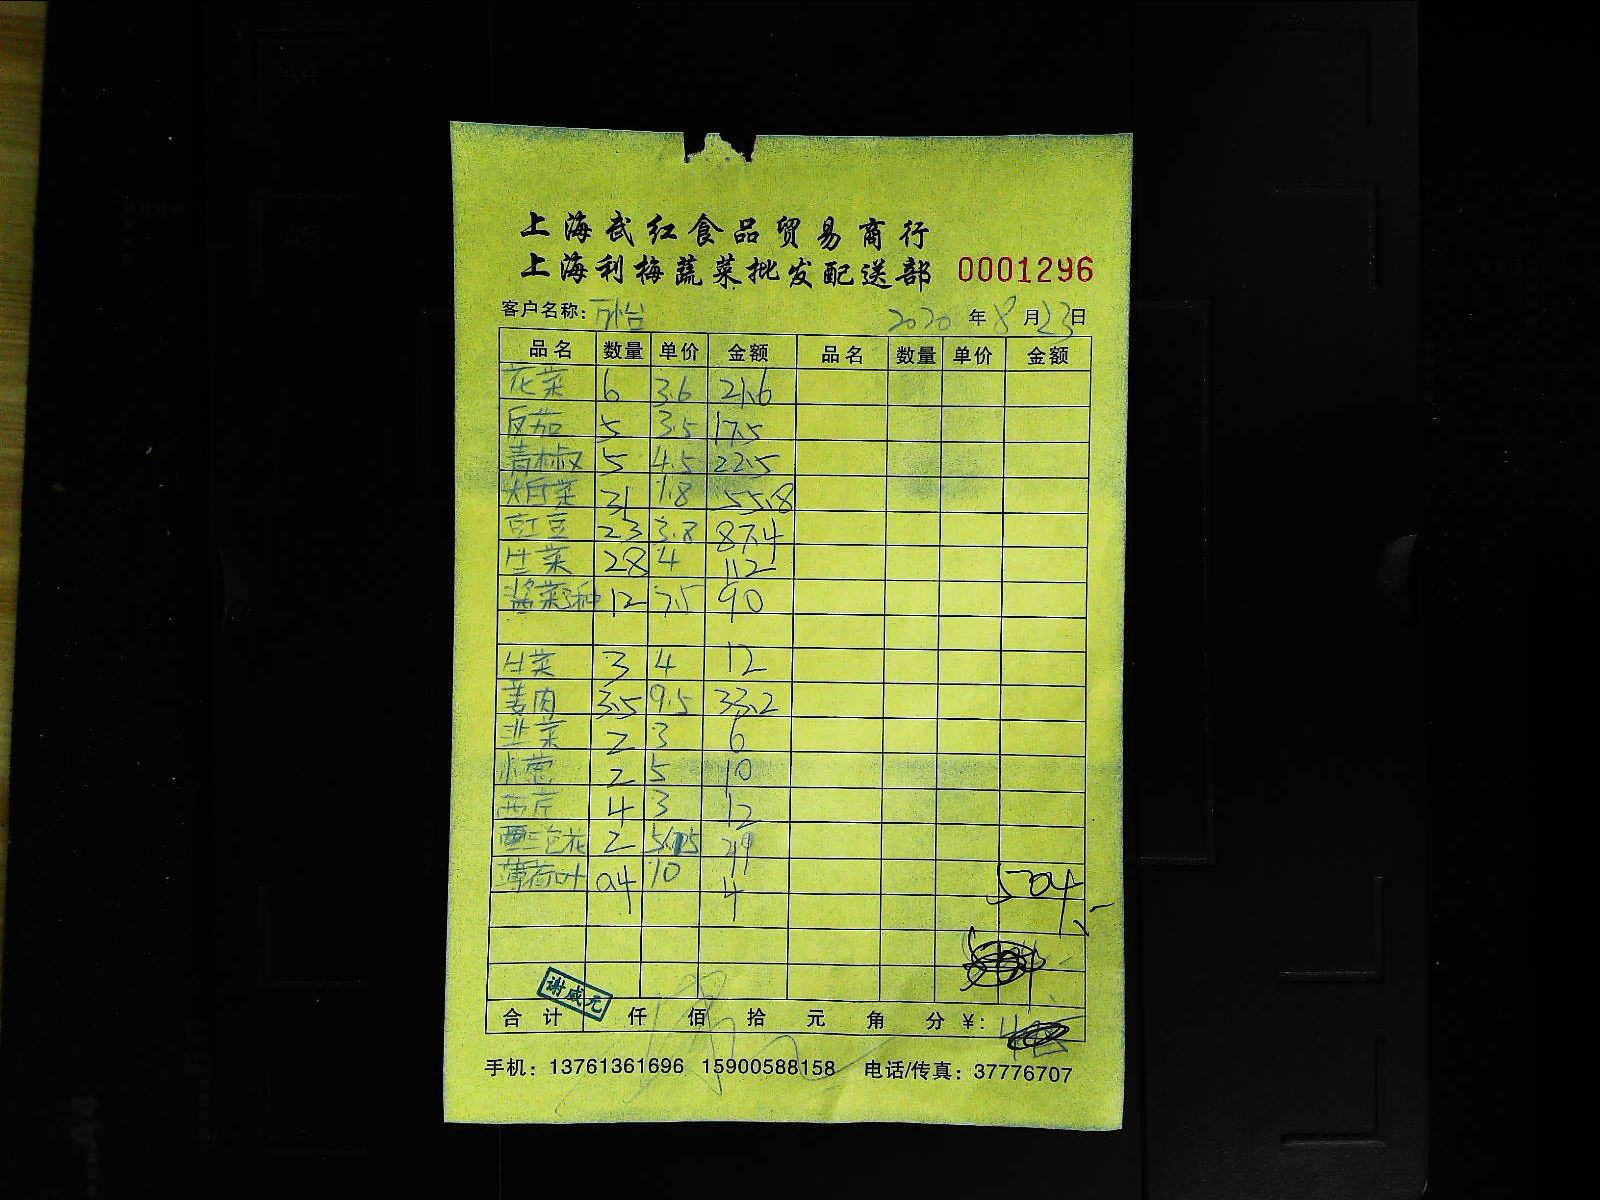 上海武红食品贸易商行
上海利梅蔬菜批发配送部 0001296
客户名称: 2020年8月23日
品名 数量 单价 金额 品名 数量 单价 金额
花菜 6 3.6 21.6
反茄 5 3.5 17.5
青椒 5 4.5 22.5
大白菜 31 1.8 55.8
豇豆 23 3.8 87.4
生菜 28 4 112
酱菜3种 12 7.5 90
生菜 3 4 12
姜肉 3.5 9.5 33.2
韭菜 2 3 6
小葱 2 5 10
西芹 4 3 12
2
薄荷叶 0.4 10 4 504
谢咸元
合计 仟 佰 拾 元 角 分 ¥:
手机: 13761361696 15900588158 电话/传真: 37776707